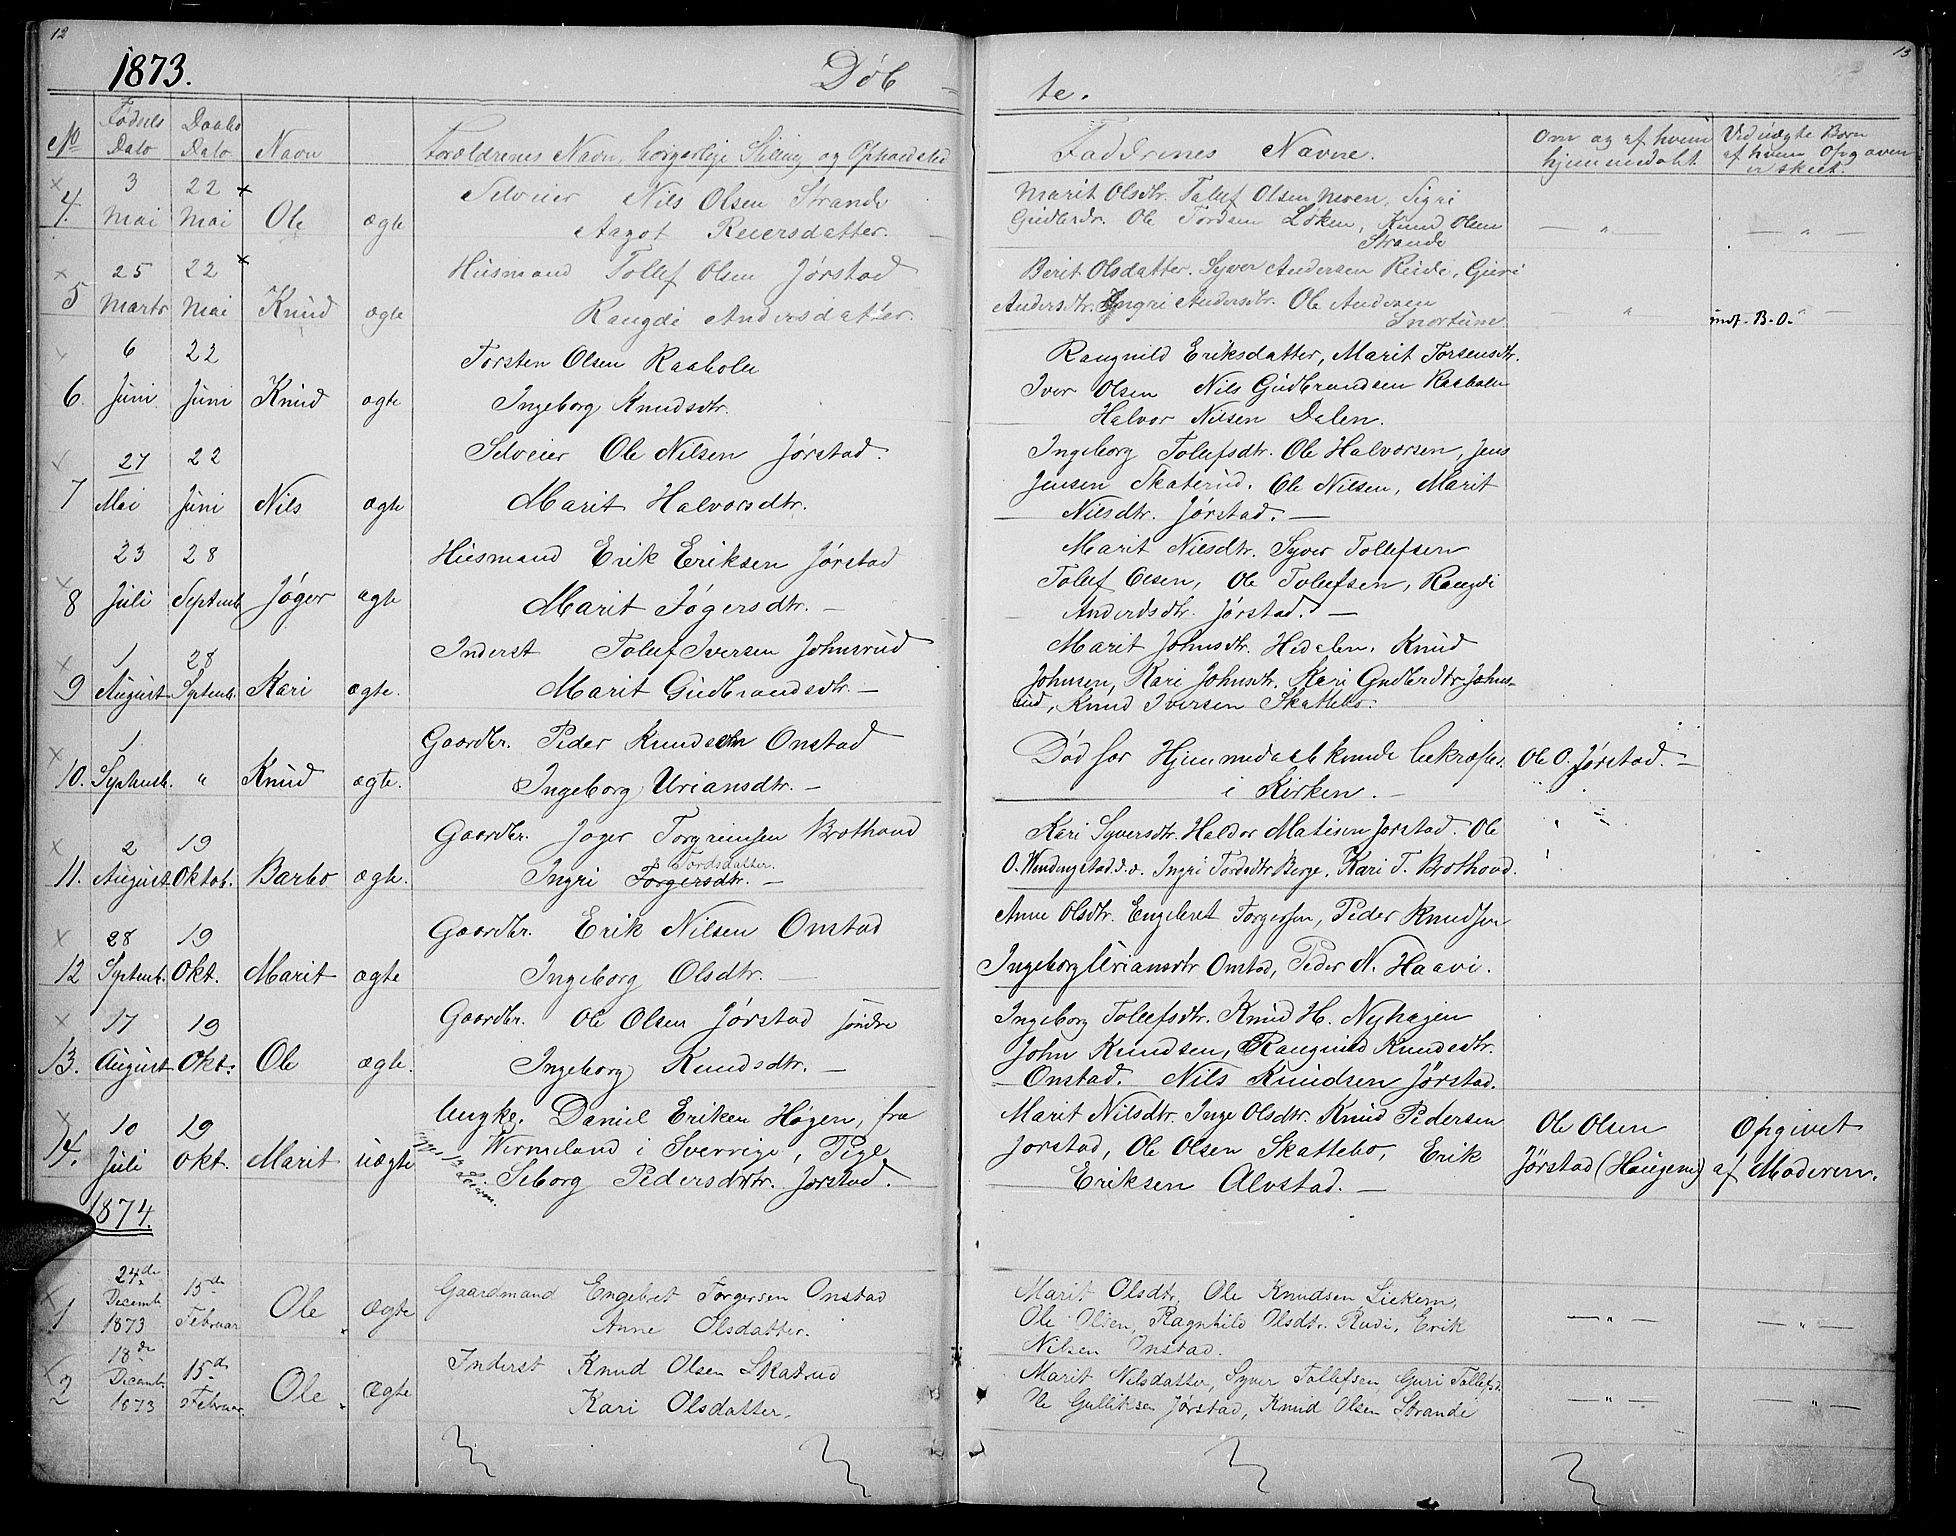 12
13
1873. Døb te.
No Fødsels Dato Daabs Dato Navn Forældrenes Navn, borgerlige Stilling og Opholdsted Faddrenes Navne. Om og af hvem hjemmedøbt. Ved uægte Børn af hvem Opgaven er skeet.
4. 3 Mai 22 Mai Ole ægte
Selveier Nils Olsen Strande
Aagot Reiersdatter.
Marit Olsdtr. Tollef Olsen Moen, Sigri
Gudbrdr. Ole Tordsen Løken, Knud Olsen
Strande
5 25 Marts 22 Mai Knud ægte
Husmand Tollef Olsen Jørstad
Rangdi Andersdatter.
Berit Olsdatter. Syver Andersen Reide, Guri
Andersdtr. Ingri Andersdtr. Ole Andersen
Snortum
indf. B.O.
6. 6 Juni 22 Juni Knud ægte
Torsten Olsen Raaholen
Ingeborg Knudsdtr.
Rangnild Eriksdatter, Marit Torsensdtr.
Iver Olsen Nils Gudbrandsen Raaholen
Halvor Nilsen Dalen.
7 27 Mai 22 Juni Nils ægte
Selveier Ole Nilsen Jørstad.
Marit Halvorsdtr.
Ingeborg Tollefsdtr. Ole Halvorsen, Jens
Jensen Skaterud. Ole Nilsen, Marit
Nilsdtr. Jørstad. —
8 23 Juli 28 Septemb. Jøger ægte
Husmand Erik Eriksen Jørstad
Marit Jøgersdtr. —
Marit Nilsdtr. Syver Tollefsen
Tollef Olsen, Ole Tollefsen, Rangdi
Anderdsdtr. Jørstad. —
9 1 August 28 Septemb. Kari ægte.
Inderst Tollef Iversen Johnsrud
Marit Gudbrandsdtr. —
Marit Johnsdtr. Hedalen, Knud
Johnsen, Kari Johnsdtr. Kari Gudbrdtr. Johns-
rud, Knud Iversen Skattebo.
10. 1 Septemb. " Knud ægte.
Gaardbr. Peder Knudsen Onstad
Ingeborg Uriansdtr. —
Død før Hjemmedaab kunde bekræftes
i Kirken. —
Ole O. Jørstad. —
11. 2 August 19 Oktob. Barbo ægte.
Gaardbr. Jøger Torgrimsen Brothovd
Tordsdatter.
Ingri Torgersdtr. —
Kari Syversdtr. Haldor Matisen Jørstad. Ole
O. Vindingstad s.o. Ingri Tordsdtr Berge, Kari T. Brothovd.
12 28 Septemb. 19 Okt. Marit ægte
Gaardbr. Erik Nilsen Onstad
Ingeborg Olsdtr. —
Anne Olsdtr. Engebret Torgersen, Peder Knudsen
Ingeborg Uriansdtr Onstad, Peder N. Haavi.
13. 17 August 19 Okt. Ole ægte.
Gaardbr. Ole Olsen Jørstad søndre
Ingeborg Knudsdtr. —
Ingeborg Tollefsdtr. Knud H. Nyhagen
John Knudsen, Rangnild Knudsdtr.
Onstad. Nils Knudsen Jørstad.
14. 10 Juli 19 Okt. Marit uægte
Ungk. Daniel Eriken Høgen, fra
Wermeland i Sverrige, Pige
Seborg Pedersdtr. Jørstad.
Marit Nilsdtr. Inge Olsdtr. Knud Pedersen
Jørstad, Ole Olsen Skattebo, Erik
Eriksen Alvstad. —
Ole Olsen
Jørstad (Haugene)
Opgivet
af Moderen.
1874.
1 24de Decemb. 1873 15de Februar Ole ægte
Gaardmand Engebret Torgersen Onstad
Anne Olsdatter.
Marit Olsdtr. Ole Knudsen Liekern,
Ole Olsen, Ragnhild Olsdtr. Rudi, Erik
Nilsen Onstad.
2 18de Decemb. 1873 15de Februar. Ole ægte
Inderst Knud Olsen Skatrud
Kari Olsdatter.
Marit Nilsdatter, Syver Tollefsen, Guri Tollefsd.
Ole Gulliksen Jørstad, Knud Olsen Strande